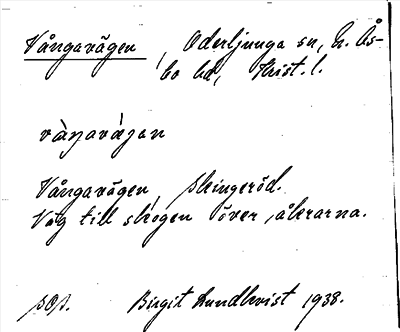 Vångavägen, Oderljunga sn, N. Ås-
bo hd, Krist. l.
våŋavägan
Vångavägen, Skingeröd.
Väg till skogen över åkrarna.
sop. Birgit Lundkvist 1938.